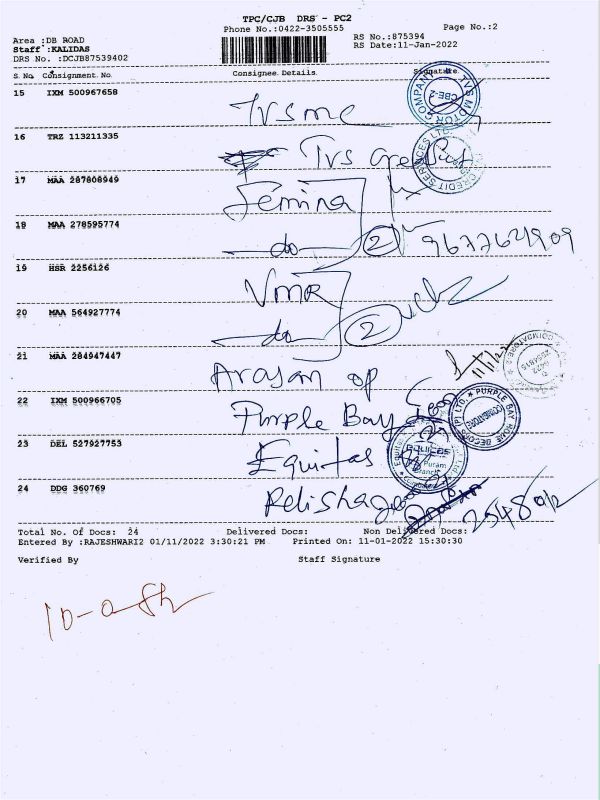 TPC/CJB DRS - PC2
Phone No.:0422-3505555
Page No.:2
Area :DB ROAD
Staff :KALIDAS
DRS No. :DCJB87539402
RS No.:875394
RS Date:11-Jan-2022
S.No. Consignment No Consignee Details Signature
15 IXM 500967658
TVS MC
TVS MOTOR COMPANY
CBE-2
16 TRZ 113211335
TVS Credit
CREDIT SERVICES LTD
17 MAA 287808949
Femina
18 MAA 278595774
do 2 9677621909
19 HSR 2256126
VMR
20 MAA 564927774
do 2
21 MAA 284947447
Arasan op
COIMBATORE
22 IXM 500966705
Purple Bay
PURPLE BAY HOME DECORS (P) LTD.
COIMBATORE
23 DEL 527927753
Equitas
equitas
Puram
Branch
24 DDG 360769
Total No. of Docs: 24 Delivered Docs: Non Delivered Docs:
Entered By :RAJESHWARI2 01/11/2022 3:30:21 PM Printed On: 11-01-2022 15:30:30
Verified By Staff Signature